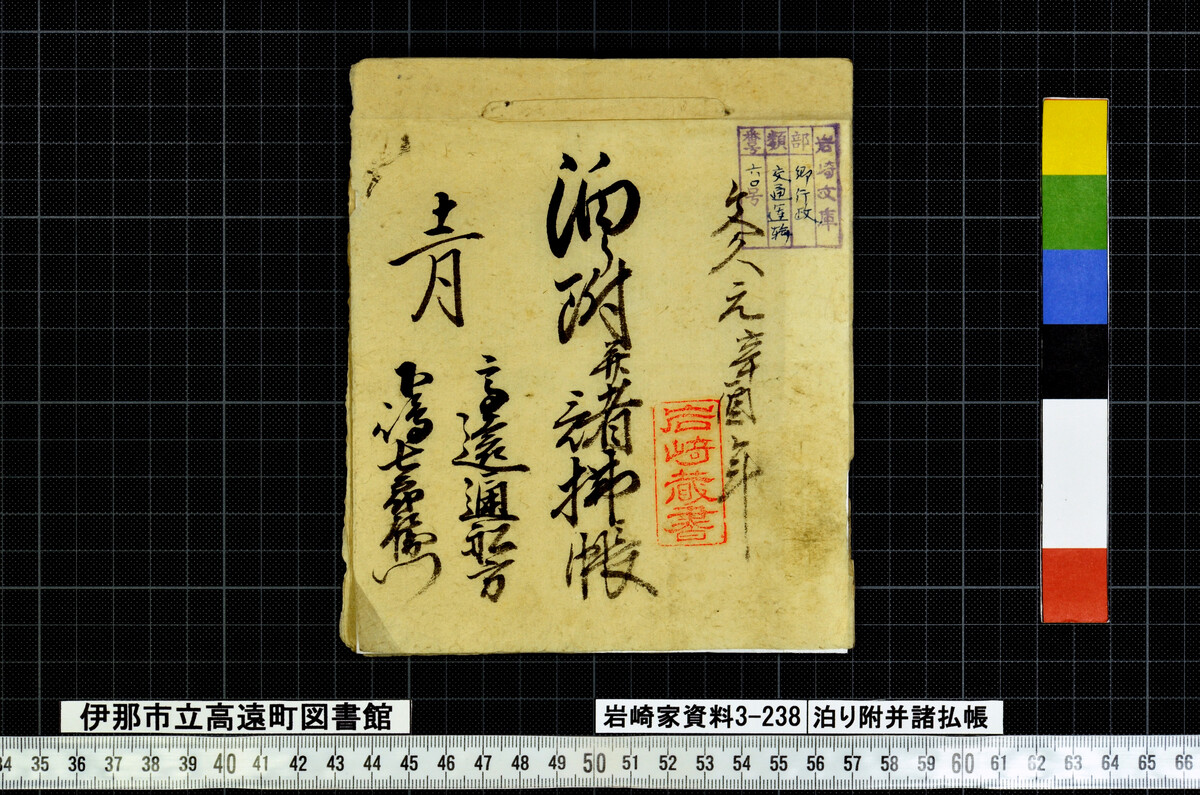 文久元辛酉年
泊り附并諸拂帳
十一月
高遠通船方
下嶋七兵衛門
岩崎文庫
部 郷行政
類 交通運輸
番号 六口号
岩崎蔵書
伊那市立高遠町図書館
岩崎家資料3-238
泊り附并諸払帳
34 35 36 37 38 39 40 41 42 43 44 45 46 47 48 49 50 51 52 53 54 55 56 57 58 59 60 61 62 63 64 65 66